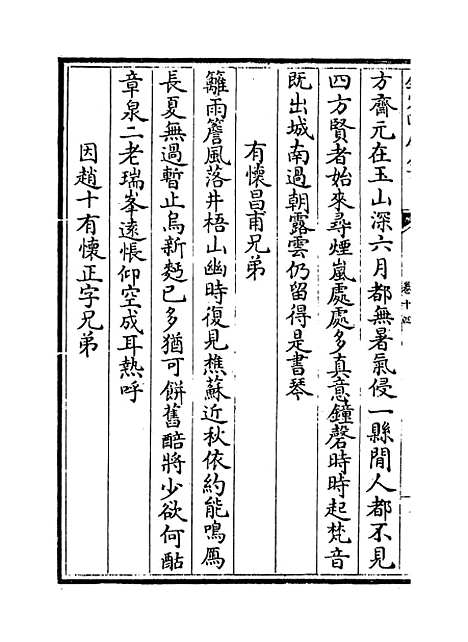 方齋元在玉山深六月都無暑氣侵一縣閒人都不見
四方賢者始來尋煙嵐處處多真意鐘磬時時起梵音
既出城南過朝露雲仍留得是書琴
有懷昌甫兄弟
籬雨簷風落井梧山幽時復見樵蘇近秋依約能鳴鴈
長夏無過暫止烏新麪已多猶可餅舊醅將少欲何酤
章泉二老瑞峯遠悵仰空成耳熱呼
因趙十有懷正字兄弟
卷十四